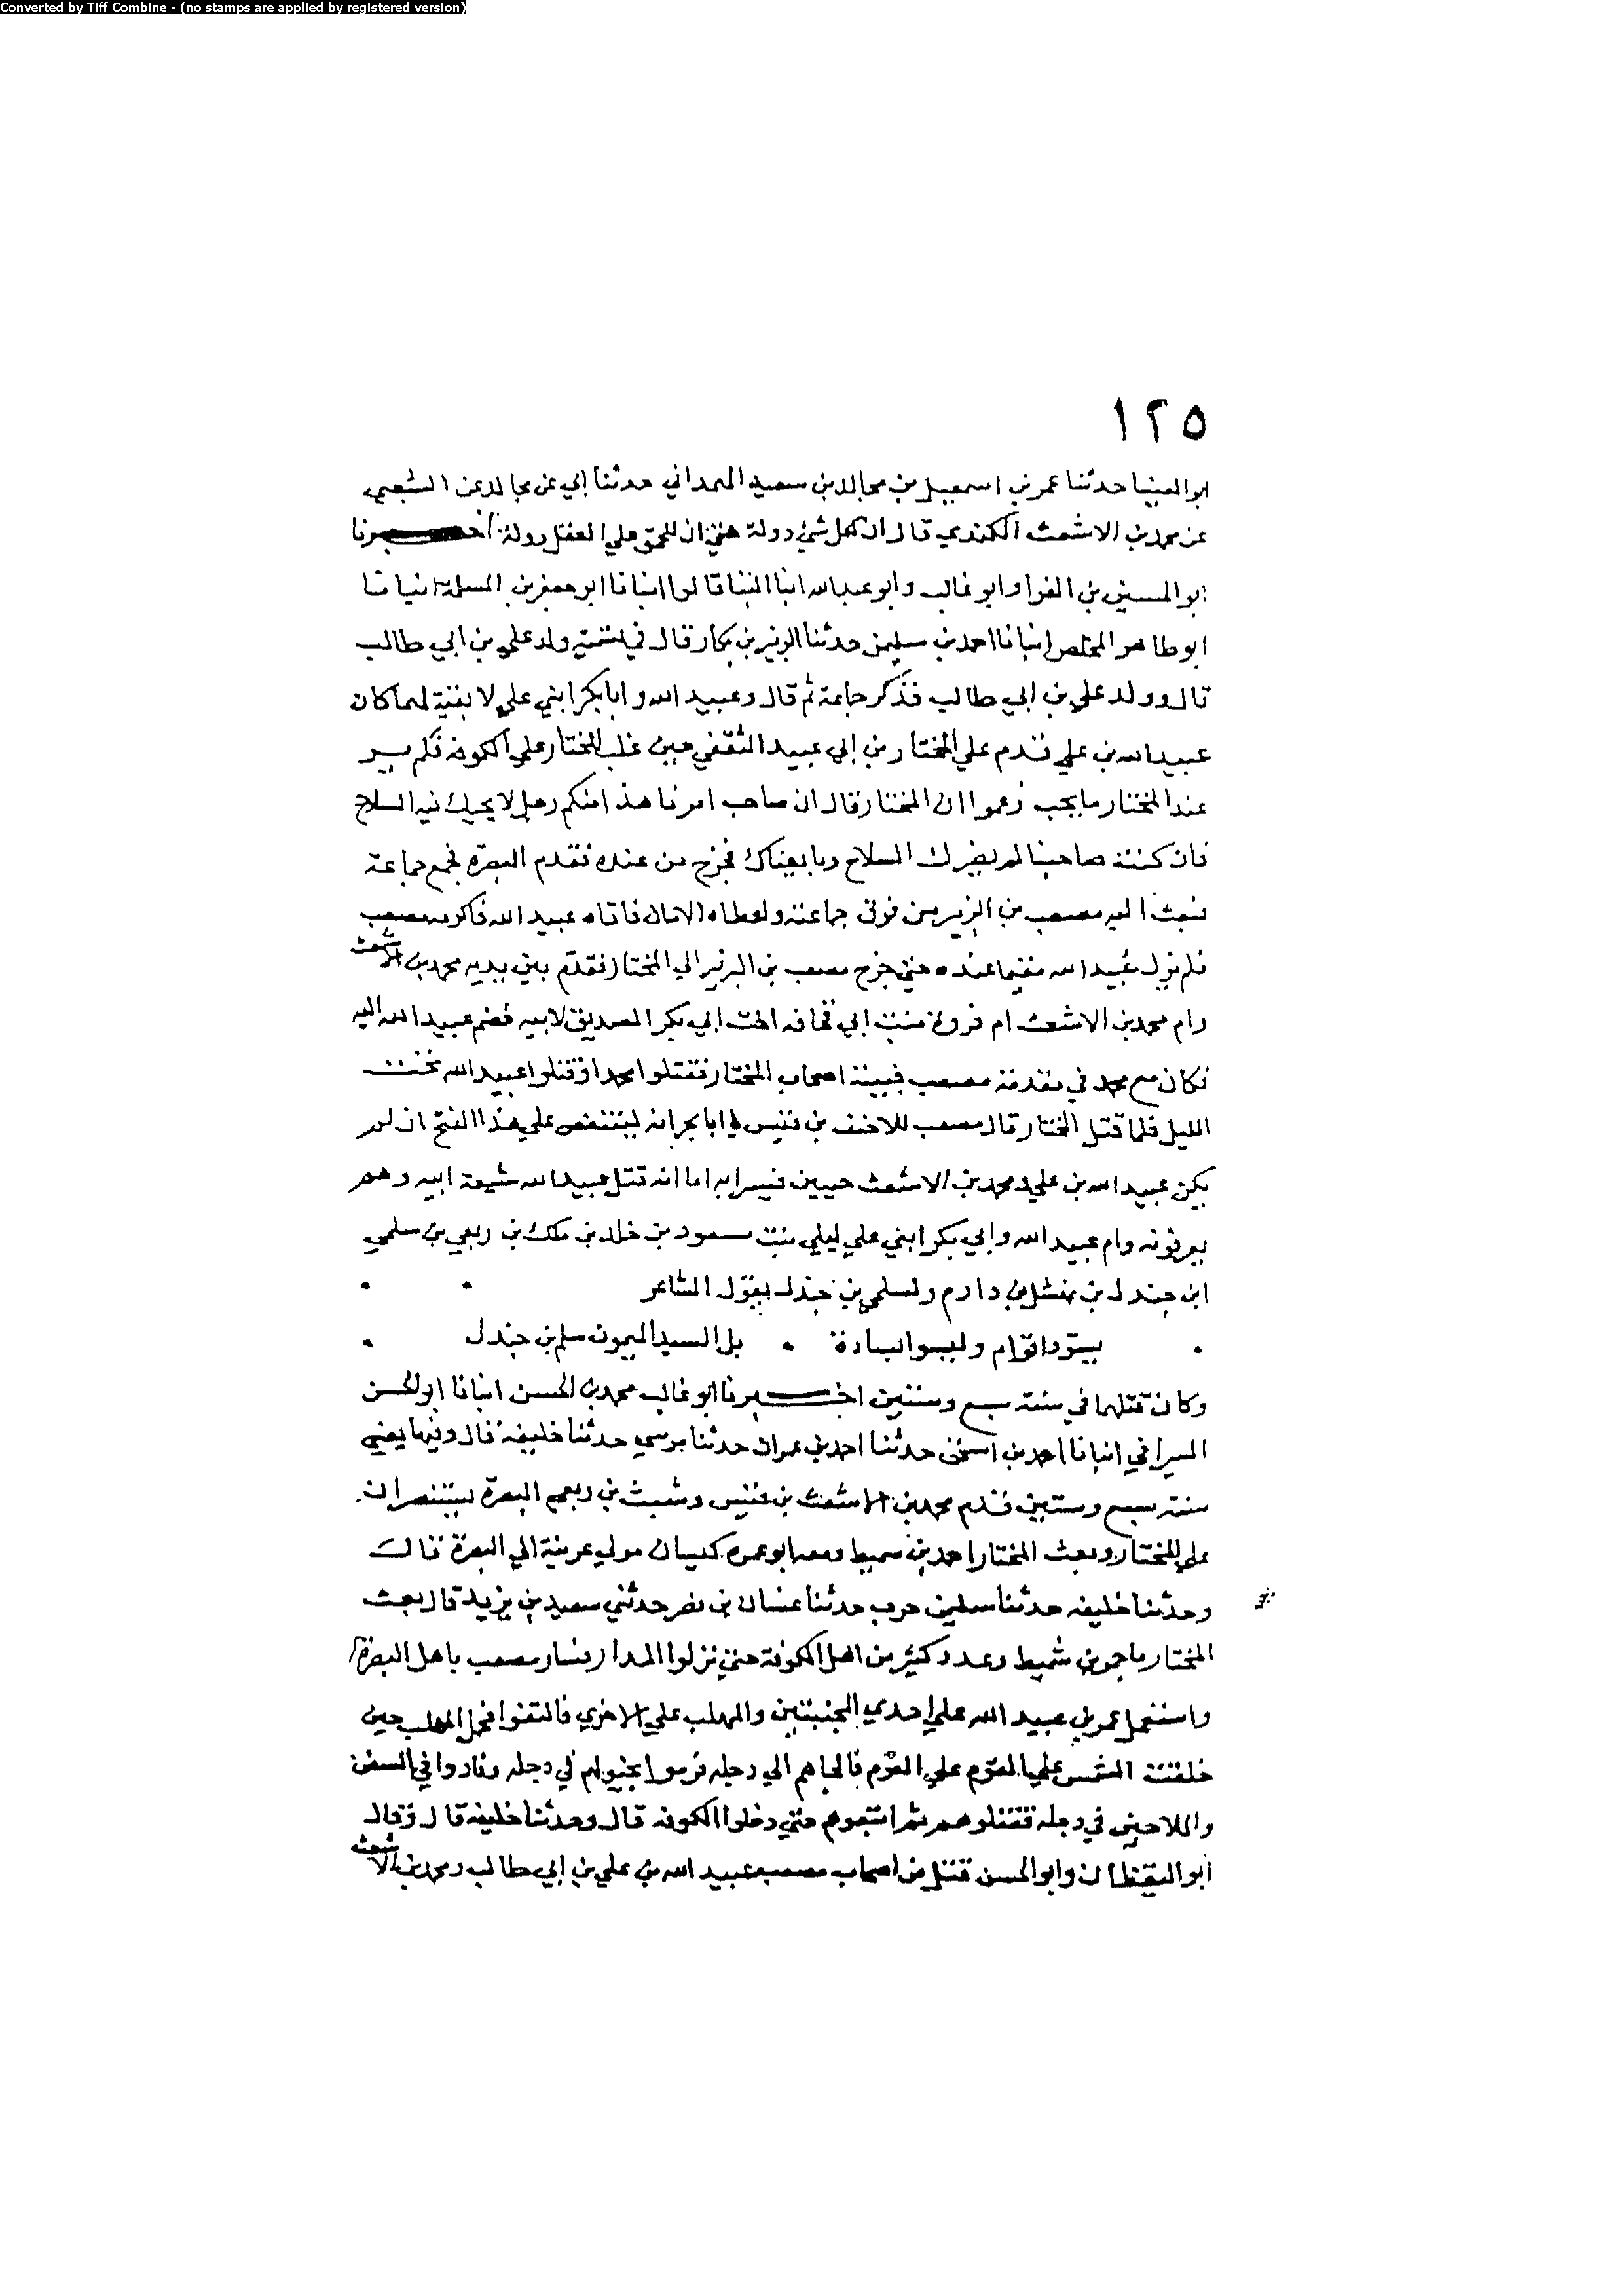 Converted by Tiff Combine - (no stamps are applied by registered version)
١٢٥
ابو العينا حدثنا عمر بن اسمعيل بن مجالد بن سعيد الهمداني حدثنا ابي عن مجالد عن الشعبي
عن محمد بن الاشعث الكندي قال ان لكل شئ دولة حتى ان للحمق علي العقل دولة اخبرنا
ابو الحسين بن الفرا وابو غالب وابو عبدالله ابنا البنا قالوا انبانا ابو جعفر بن المسلمة انبانا
ابو طاهر المخلص انبانا احمد بن سليمن حدثنا الزبير بن بكار قال في تسمية ولد علي بن ابي طالب
قال وولد علي بن ابي طالب فذكر جماعة ثم قال وعبيد الله وابا بكر ابني علي لا بقية لهما كان
عبيدالله بن علي قدم علي المختار بن ابي عبيد الثقفي حين غلب المختار علي الكوفه فلم ير
عند المختار ما يحب زعموا ان المختار قال ان صاحب امرنا هذا منكم رجل لا يحيك فيه السلاح
فان كنت صاحبنا لم يضرك السلاح وبايعناك فخرج من عنده فقدم البصرة فجمع جماعة
فبعث اليه مصعب بن الزبير من فرق جماعته واعطاه الامان فاتاه عبيد الله فاكرمه مصعب
فلم يزل عبيد الله مقيما عنده حتي خرج مصعب بن الزبير الي المختار فقدم بين يديه محمد بن الاشعث
وام محمد بن الاشعث ام فروة بنت ابي قحافه اخت ابي بكر الصديق لابيه فضم عبيد الله اليه
فكان مع محمد في مقدمة مصعب فبيته اصحاب المختار فقتلوا محمدا وقتلوا عبيد الله تحت
الليل فلما قتل المختار قال مصعب للاحنف بن قيس يا ابا بحر انه ليتنغص علي هذا الفتح ان لم
يكن عبيد الله بن علي ومحمد بن الاشعث حيين فيسرا به اما انه قتل عبيد الله شيعة ابيه وهم
يعرفونه وام عبيد الله وابي بكر ابني علي ليلي بنت مسعود بن خلد بن ملك بن ربعي بن سلمي
ابن جندل بن نهشل بن دارم ولسلمي بن جندل يقول الشاعر
يسود اقوام وليسوا بسادة ٠ بل السيد الميمون سلم بن جندل
وكان قتلهما في سنة سبع وستين اخبرنا ابو غالب محمد بن الحسن انبانا ابو الحسن
السيرافي انبانا احمد بن اسحق حدثنا احمد بن عمران حدثنا موسي حدثنا خليفة قال وفيها يعني
سنة سبع وستين قدم محمد بن الاشعث بن قيس وشبث بن ربعي البصرة يستنصران
علي المختار وبعث المختار احمد بن سميط ومعه ابو عمره كيسان مولي عرينة الي البصرة قال
وحدثنا خليفه حدثنا سليمن حرب حدثنا غسان بن نصر حدثني سعيد بن يزيد قال بعث
المختار باحمر بن شميط وعدد كثير من اهل الكوفة حتي نزلوا المدار وسار مصعب باهل البصرة
واستعمل عمر بن عبيد الله علي احدي المجنبتين والمهلب علي الاخري فالتقوا فحمل المهلب حين
خلقت الشمس علي القوم علي القوم فالجاهم الي دجله فرموا بخيولهم في دجله ونادوا في السفن
والملاحين في دجله فقتلوهم ثم اتبعوهم حتي دخلوا الكوفه قال وحدثنا خليفه قال وقال
ابو اليقظان وابو الحسن قتل من اصحاب مصعب عبيد الله بن علي بن ابي طالب ومحمد بن الاشعث